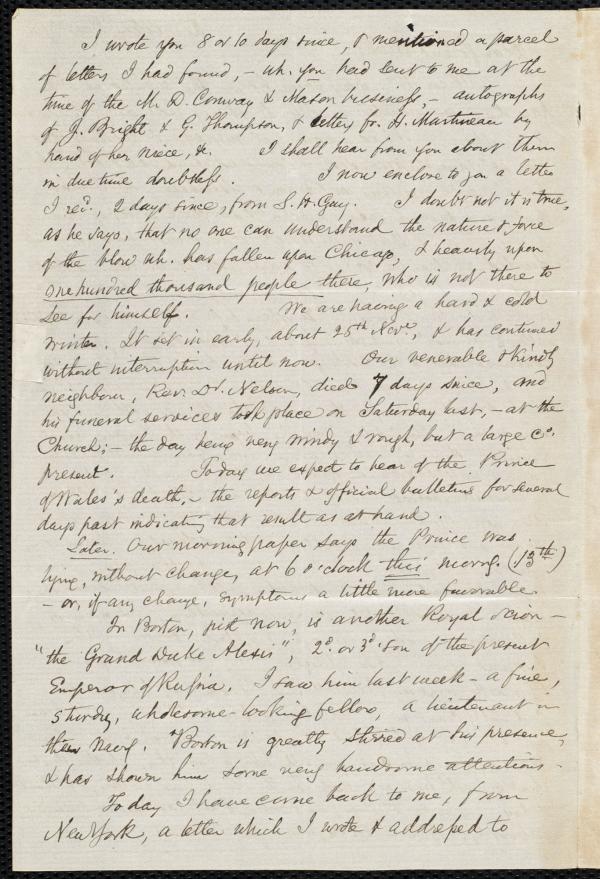 I wrote you 8 or 10 days since, & mentioned a parcel
of letters I had found, – wh. you had sent to me at the
time of the M. D. Conway & Mason business, – autographs
of J. Bright & G. Thompson, & letters fr. H. Martineau by
hand of her niece, &c. I shall hear from you about them
in due time doubtless. I now enclose to you a letter
I recd., 2 days since, from S. H. Gay. I doubt not it is true,
as he says, that no one can understand the nature & force
of the blow wh. has fallen upon Chicago, & heavily upon
one hundred thousand people there, who is not there to
see for himself. We are having a hard & cold
winter. It set in early, about 25th Novr., & has continued
without interruption until now. Our venerable & kindly
neighbour, Rev. Dr. Nelson, died 7 days since, and
his funeral services took place on Saturday last, – at the
Church; – the day being very windy & rough, but a large Co.
present. Today we expect to hear of the Prince
of Wales's death, – the reports & official bulletins for several
days past indicating that result as at hand.
Later. Our morning paper says the Prince was
lying, without change, at 6 o'clock this morng. (13th)
– or, if any change, symptoms a little more favorable.
In Boston, just now, is another Royal scion –
"the Grand Duke Alexis", 2d. or 3d. son of the present
Emperor of Russia. I saw him last week – a fine,
sturdy, wholesome-looking fellow, a lieutenant in
their Navy. Boston is greatly stirred at his presence,
& has shown him some very handsome attentions –
Today I have come back to me, from
New York, a letter which I wrote & addressed to